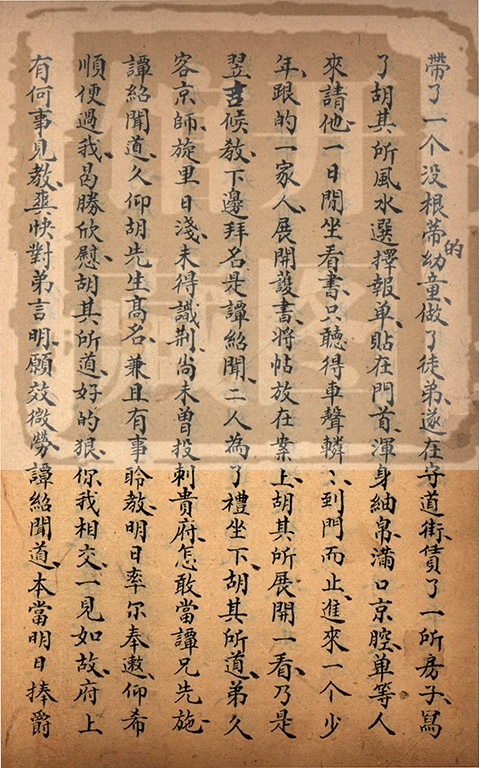 帶了一个没根蒂的幼童、做了徒弟、遂在守道街賃了一所房子、寫
了胡其所風水選擇報单、貼在門首、渾身紬帛、滿口京腔、单等人
來請他、一日閒坐看書、只聽得車聲轔〻、到門而止、進來一个少
年、跟的一家人、展開護書、將帖放在案上、胡其所展開一看、乃是
翌吉候教、下邊拜名是譚紹聞、二人為了禮坐下、胡其所道、弟久
客京師、旋里日淺、未得識荆、尚未曾投刺貴府、怎敢當譚兄先施
譚紹聞道、久仰胡先生髙名、兼且有事聆教、明日率尔奉邀、仰希
順便過我、曷勝欣慰、胡其所道、好的狠、你我相交、一見如故、府上
有何事見教、爽快對弟言明、願效微勞、譚紹聞道、本當明日捧爵